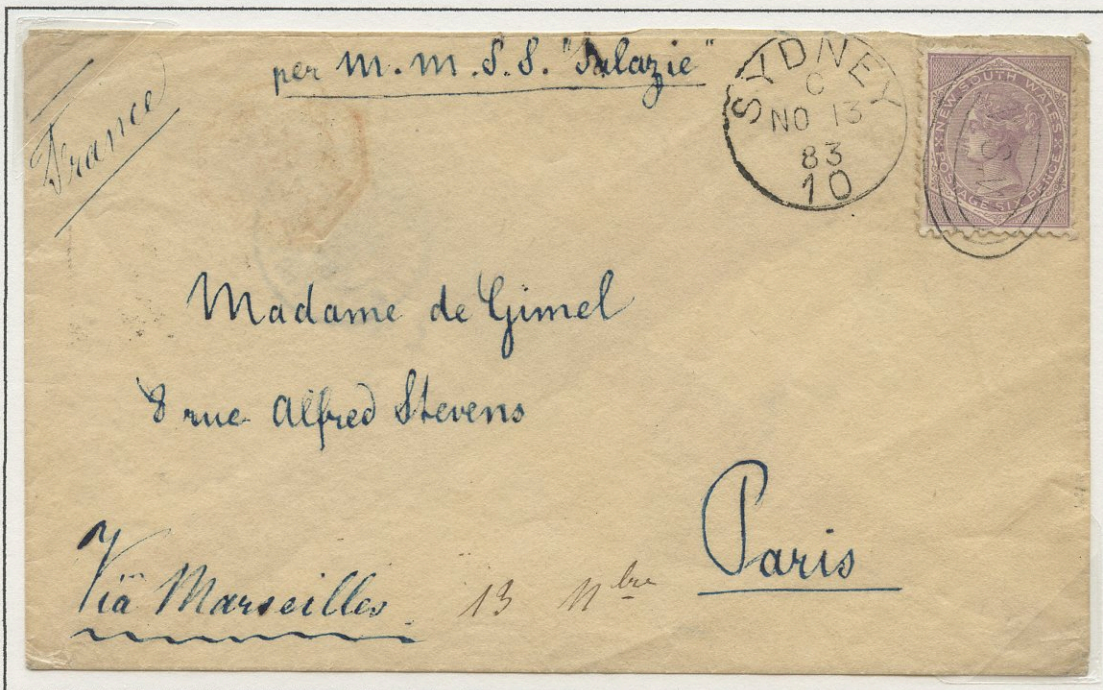 per M.M.S.S. "Salazie"
France
SYDNEY
C
NO 13
83
10
NEW SOUTH WALES
POSTAGE SIX PENCE
N.S.W
Madame de Gimel
8 rue Alfred Stevens
Paris
Viä Marseilles
13 Nbre